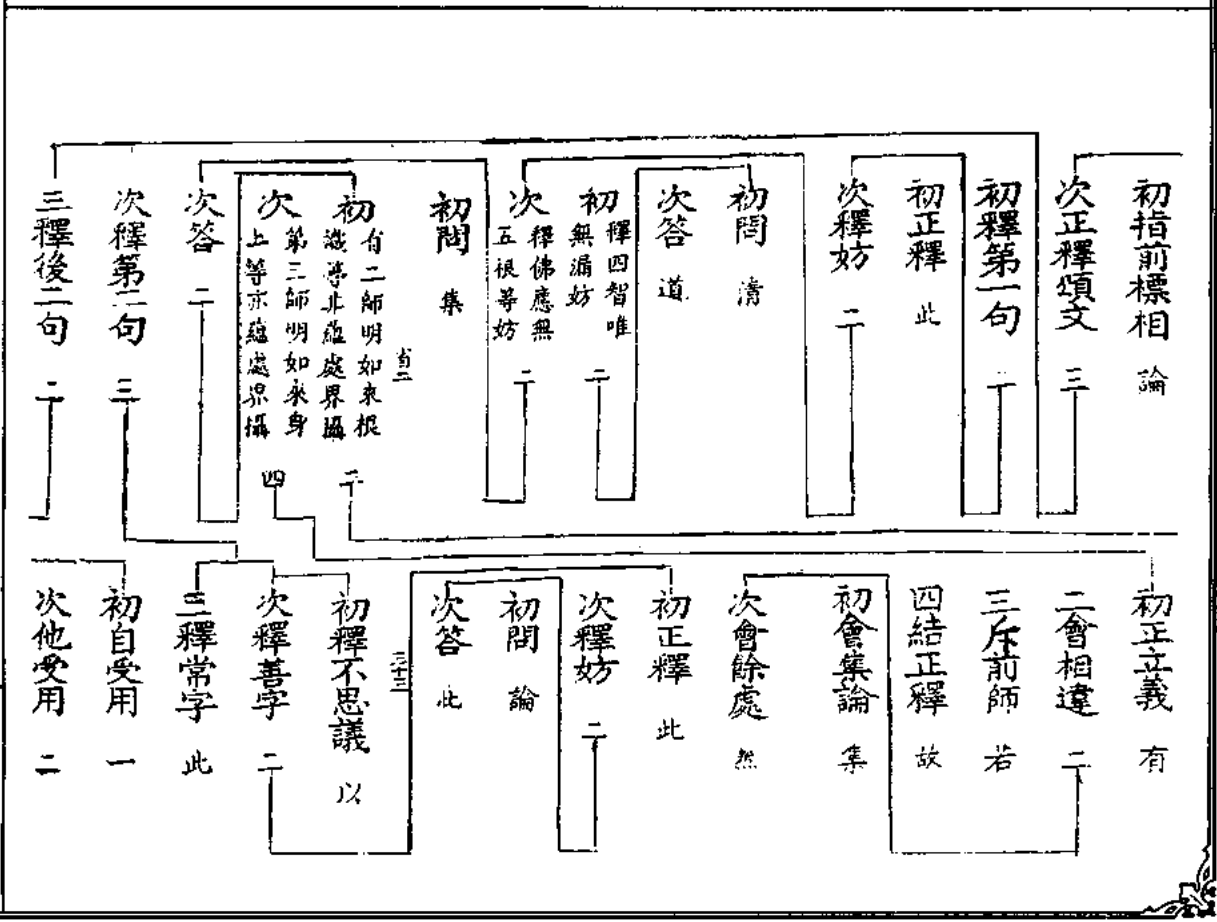 初指前標相 論
次正釋頌文 三
初釋第一句 二
初正釋 此
次釋妨 二
初問 清
次答 道
初釋四智唯無漏妨 二
次釋佛應無五根等妨 二
初問 集
初有二師明如來根識等非蘊處界攝 二
次第三師明如來身上等亦蘊處界攝 四
次答 二
次釋第二句 三
三釋後二句 二
初正立義 有
二會相違 二
三斥前師 若
四結正釋 故
初會集論 集
次會餘處 然
初正釋 此
次釋妨 二
初問 論
次答 此
初釋不思議 以
次釋善字 二
三釋常字 此
初自受用 一
次他受用 二